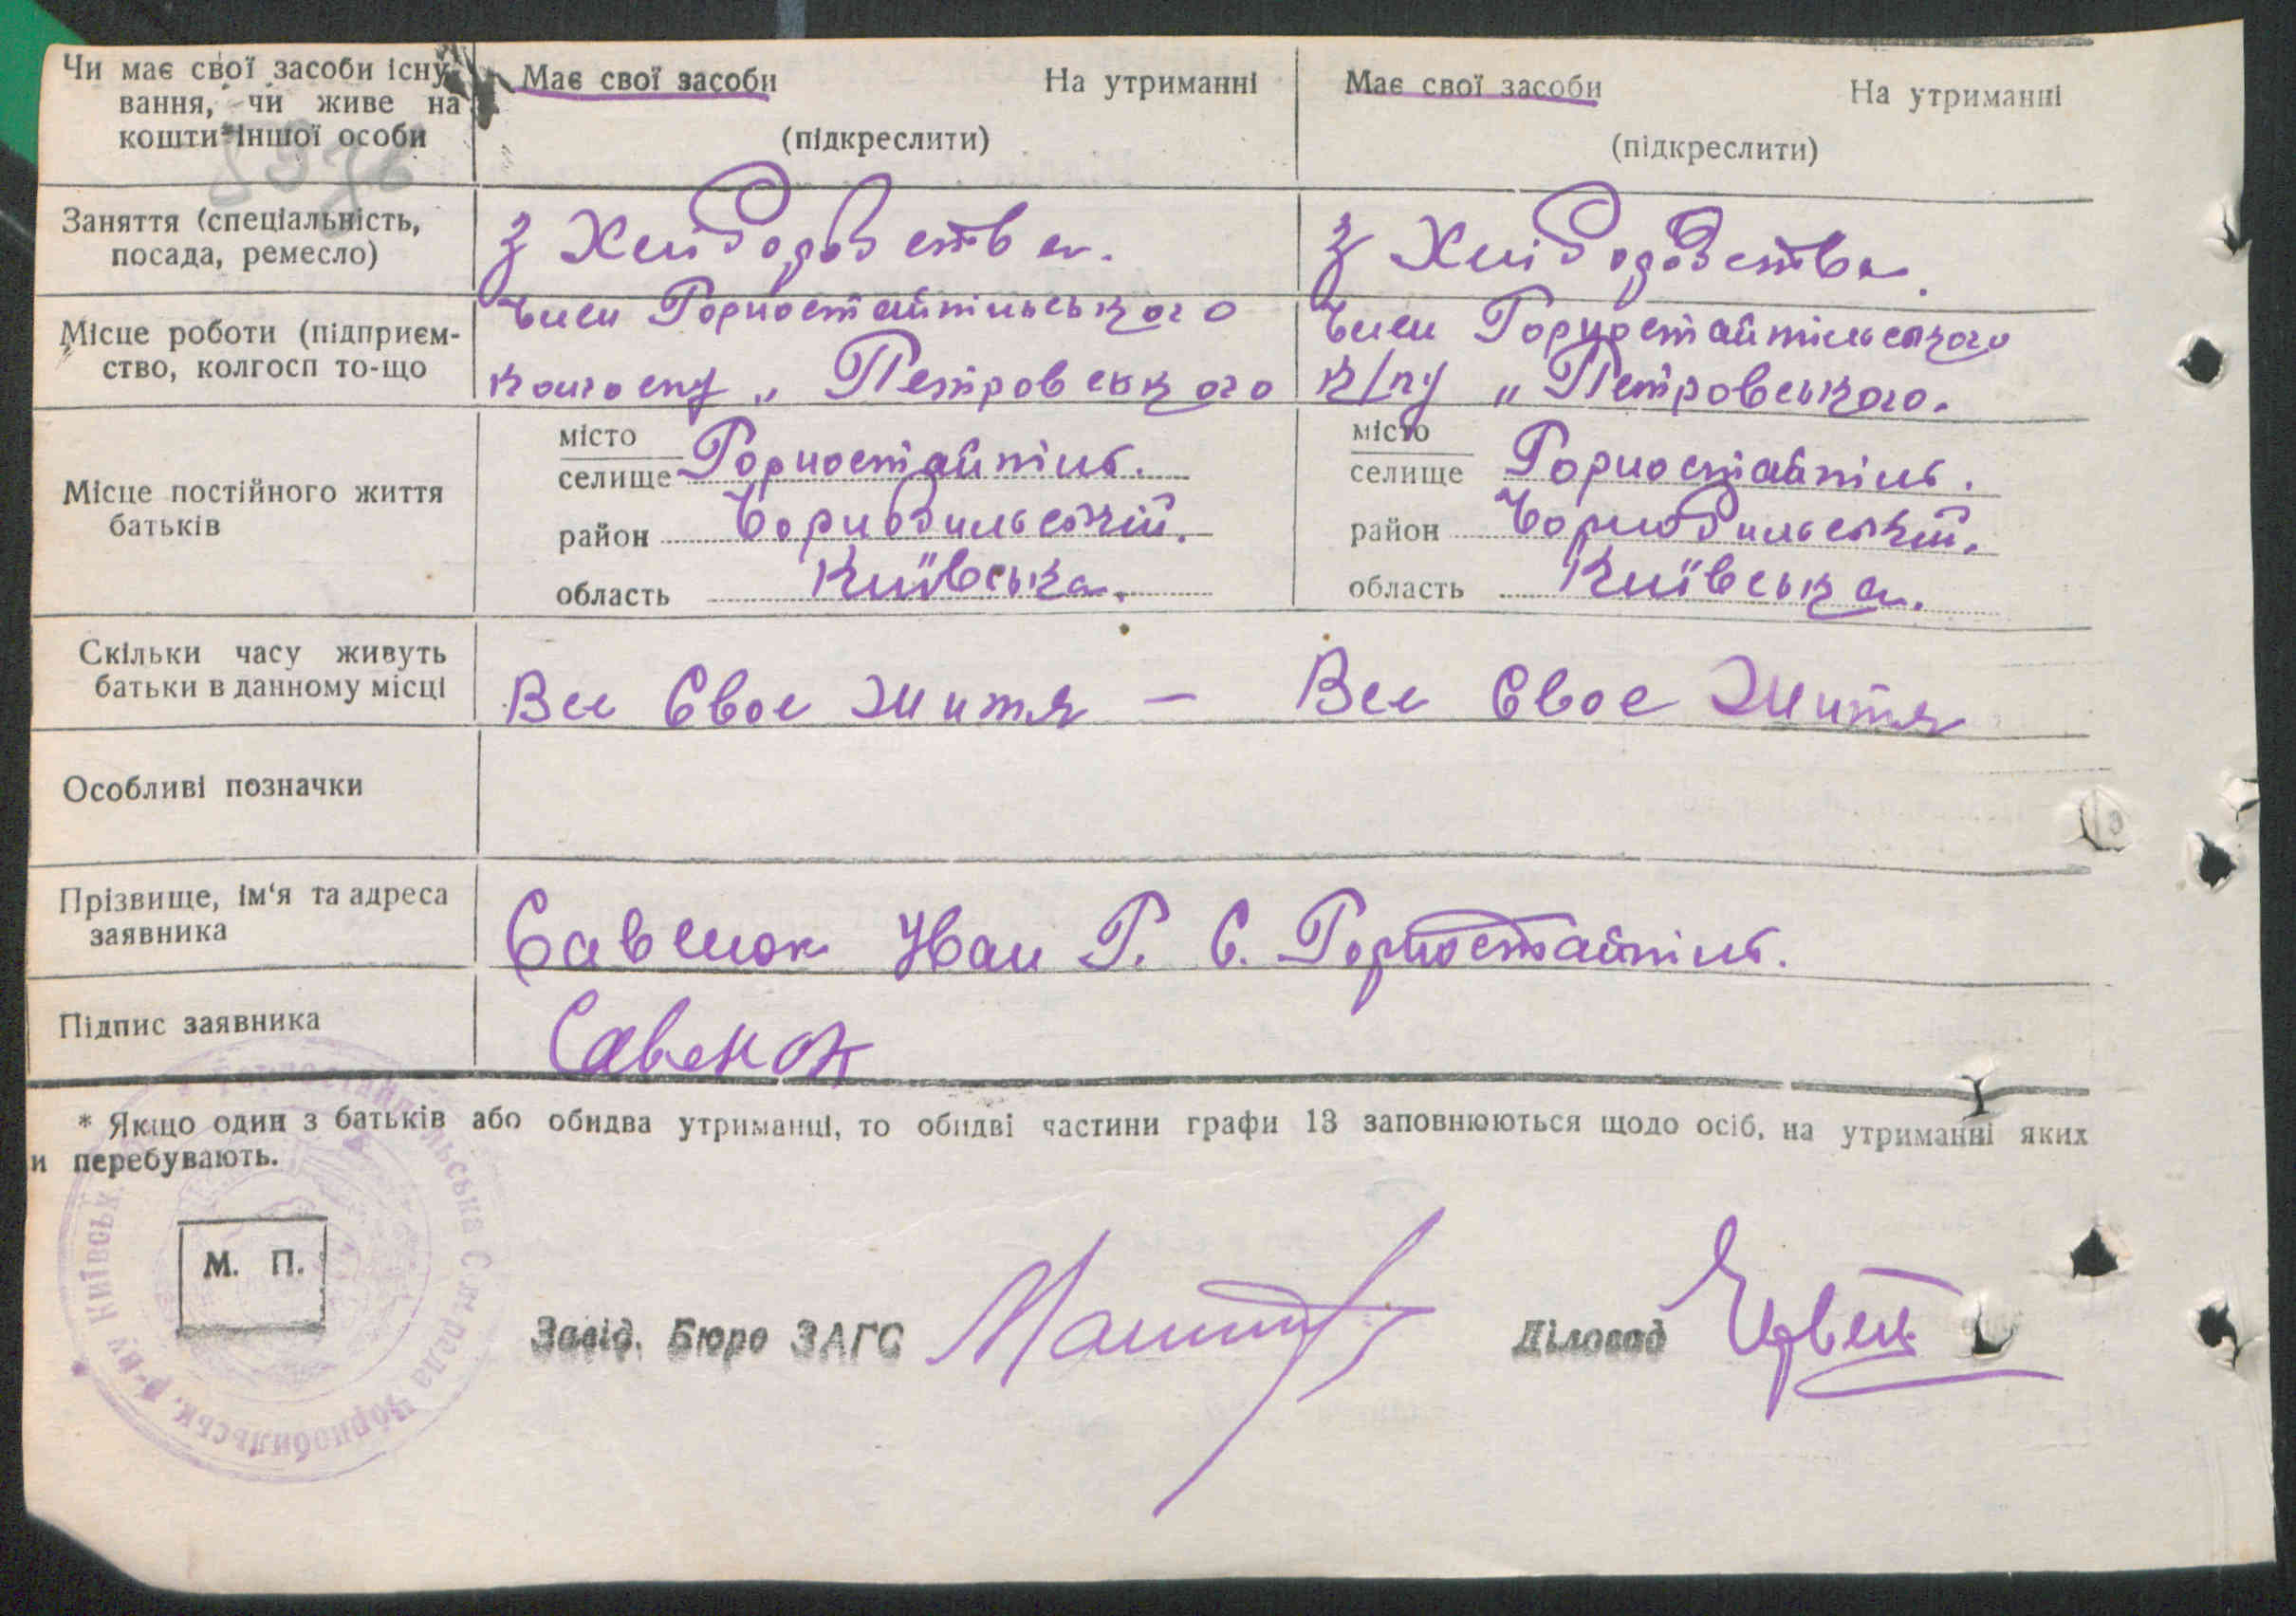 Чи має свої засоби існу-
вання, чи живе на
кошти іншої особи
Має свої засоби На утриманні
(підкреслити)
Має свої засоби На утриманні
(підкреслити)
Заняття (спеціальність,
посада, ремесло)
З Хліборобства.
З Хліборобства.
Місце роботи (підприєм-
ство, колгосп то-що
Член Горностайпільського
колгоспу „ Петровського
Член Горностайпільського
к/пу „ Петровського.
Місце постійного життя
батьків
місто
селище Горностайпіль.
район Чорнобильській.
область Київська.
місто
селище Горностайпіль.
район Чорнобильській.
область Київська.
Скільки часу живуть
батьки в данному місці
Все Свое Життя — Все Свое Життя
Особливі позначки
Прізвище, ім'я та адреса
заявника
Савенок Иван Г. С. Горностайпіль.
Підпис заявника
Савенок
* Якщо один з батьків або обидва утриманці, то обидві частини графи 13 заповнюються щодо осіб, на утриманні яких
и перебувають.
М. П.
Завід. Бюро ЗАГС
Діловод
Горностайпільська Сільрада Чорнобильськ. р-ну Київськ.